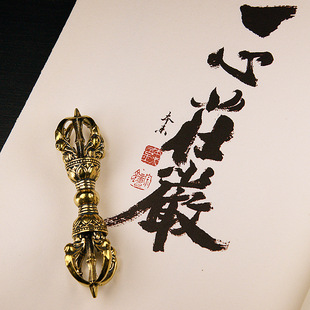 一心莊嚴